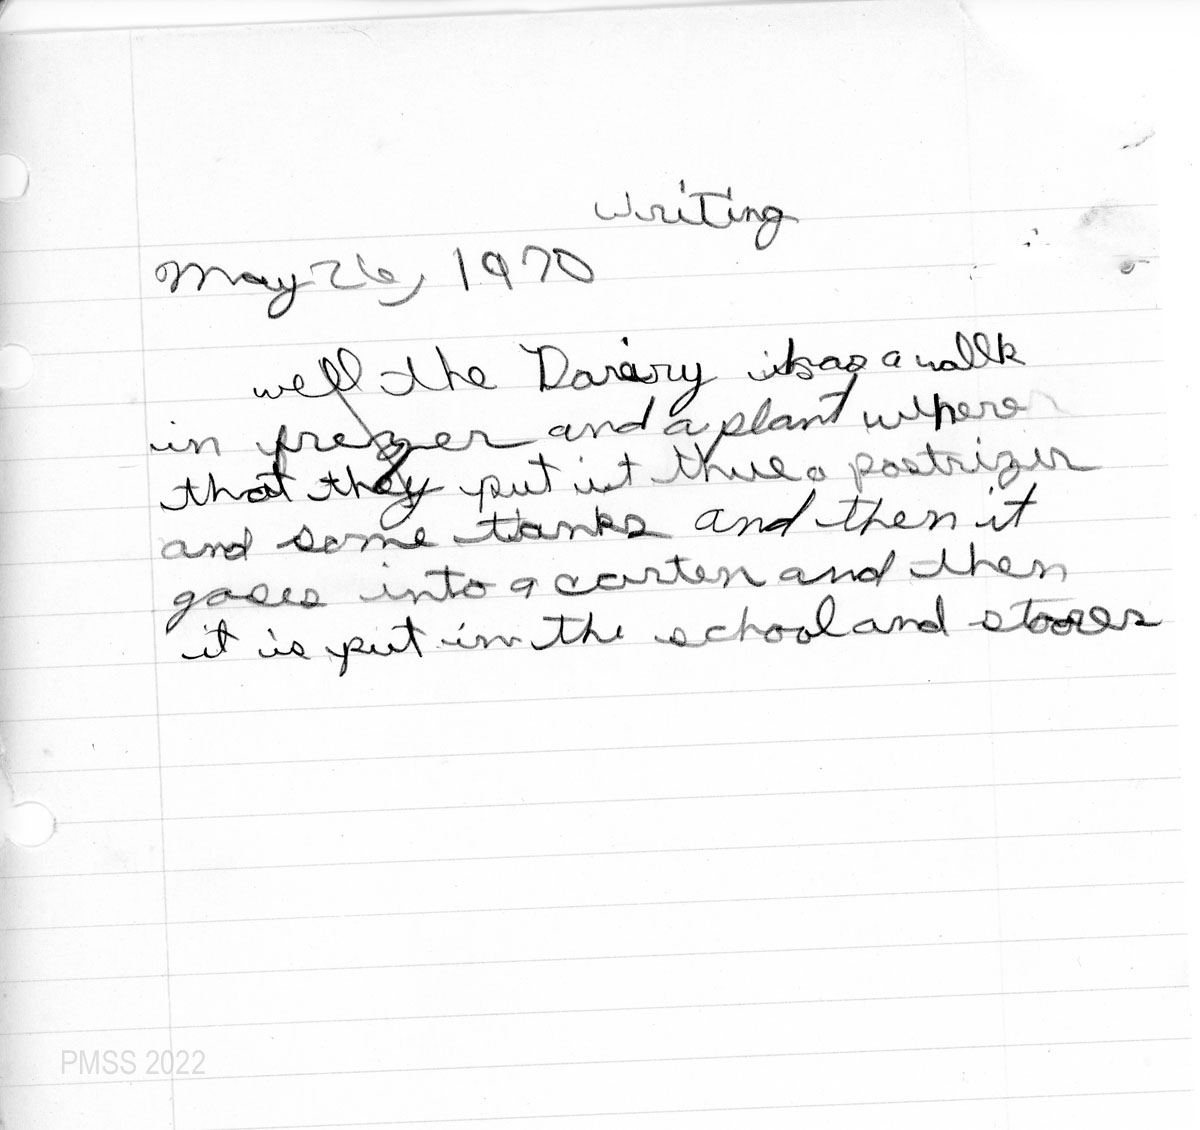 writing
May 26, 1970
well the Dariery has a wallk
in frezer and a plant whpere
that they put it thue a postrizer
and some tanks and then it
goees into a carten and then
it is put in the school and stores
PMSS 2022